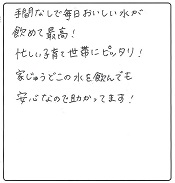 手間なしで毎日おいしい水が
飲めて最高！
忙しい子育て世帯にピッタリ！
家じゅうどこの水を飲んでも
安心なので助かってます！